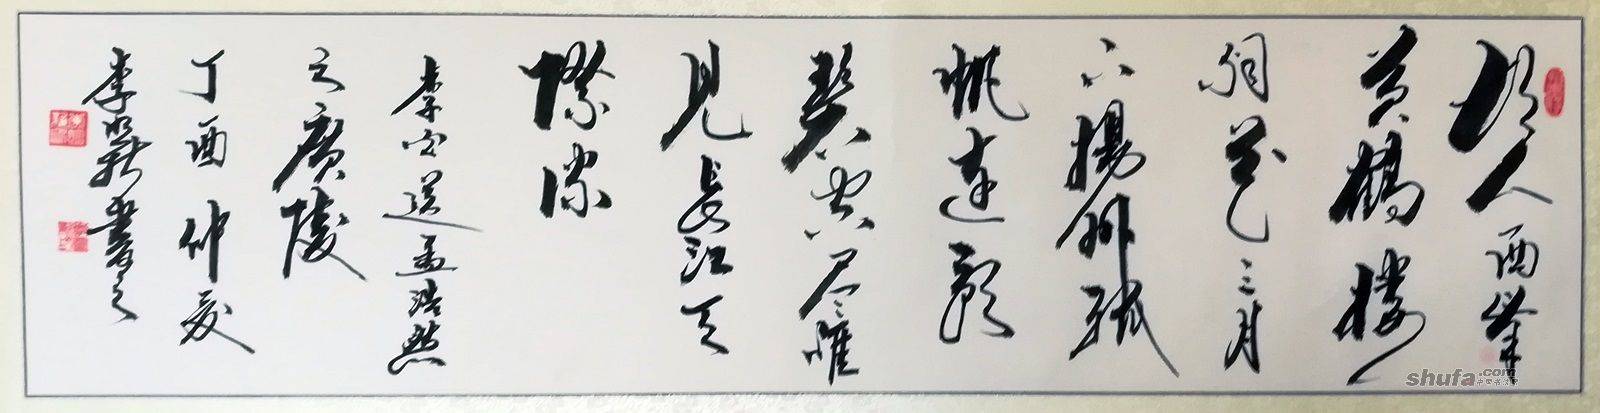 故人西辞
黄鶴楼
烟花三月
下揚州孤
帆遠影
碧空尽惟
見長江天
際流
李白送孟浩然
之廣陵
丁酉仲夏
李書之
shufa.com